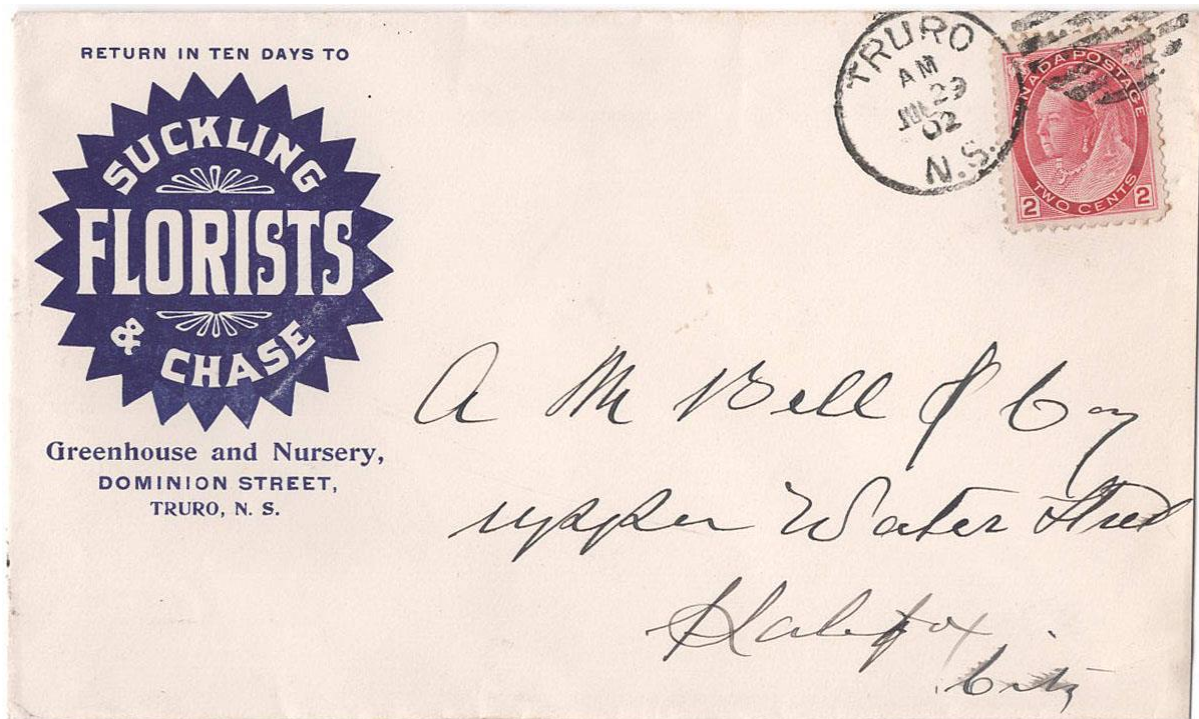 RETURN IN TEN DAYS TO
SUCKLING
FLORISTS
& CHASE
Greenhouse and Nursery,
DOMINION STREET,
TRURO, N. S.
TRURO
AM
29
02
N.S.
CANADA POSTAGE
2 TWO CENTS 2
A M Bell & Coy
upper Water Street
Halifax
City